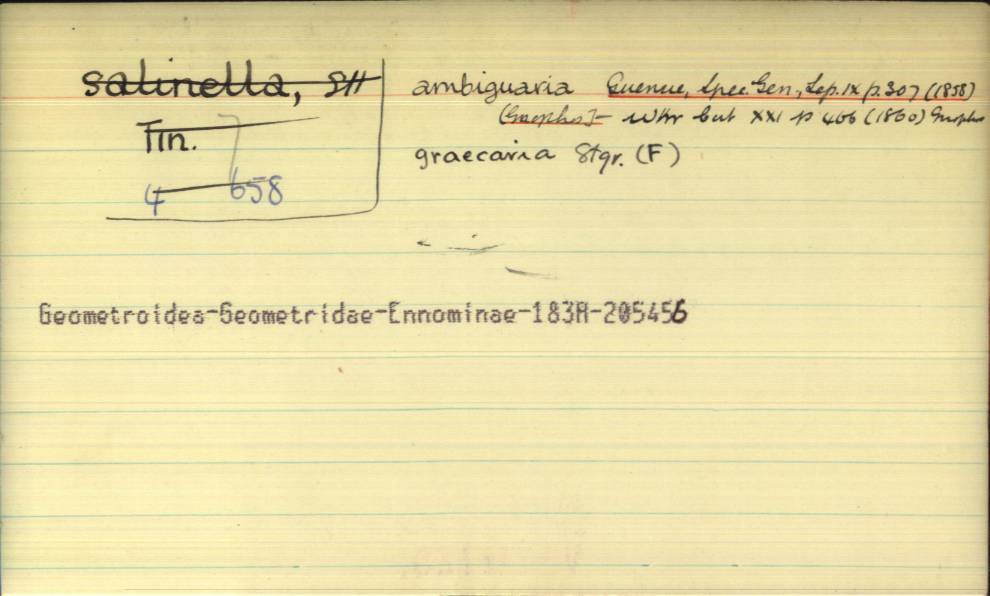 salinella, Stt
Tin.
4 658
ambiguaria Guenee, Spec. Gen, Lep. IX p. 307 (1858)
(Gnophos) - Wlkr but XXI p 466 (1860) Gnophos
graecaria Stgr. (F)
Geometroidea-Geometridae-Ennominae-183A-205456